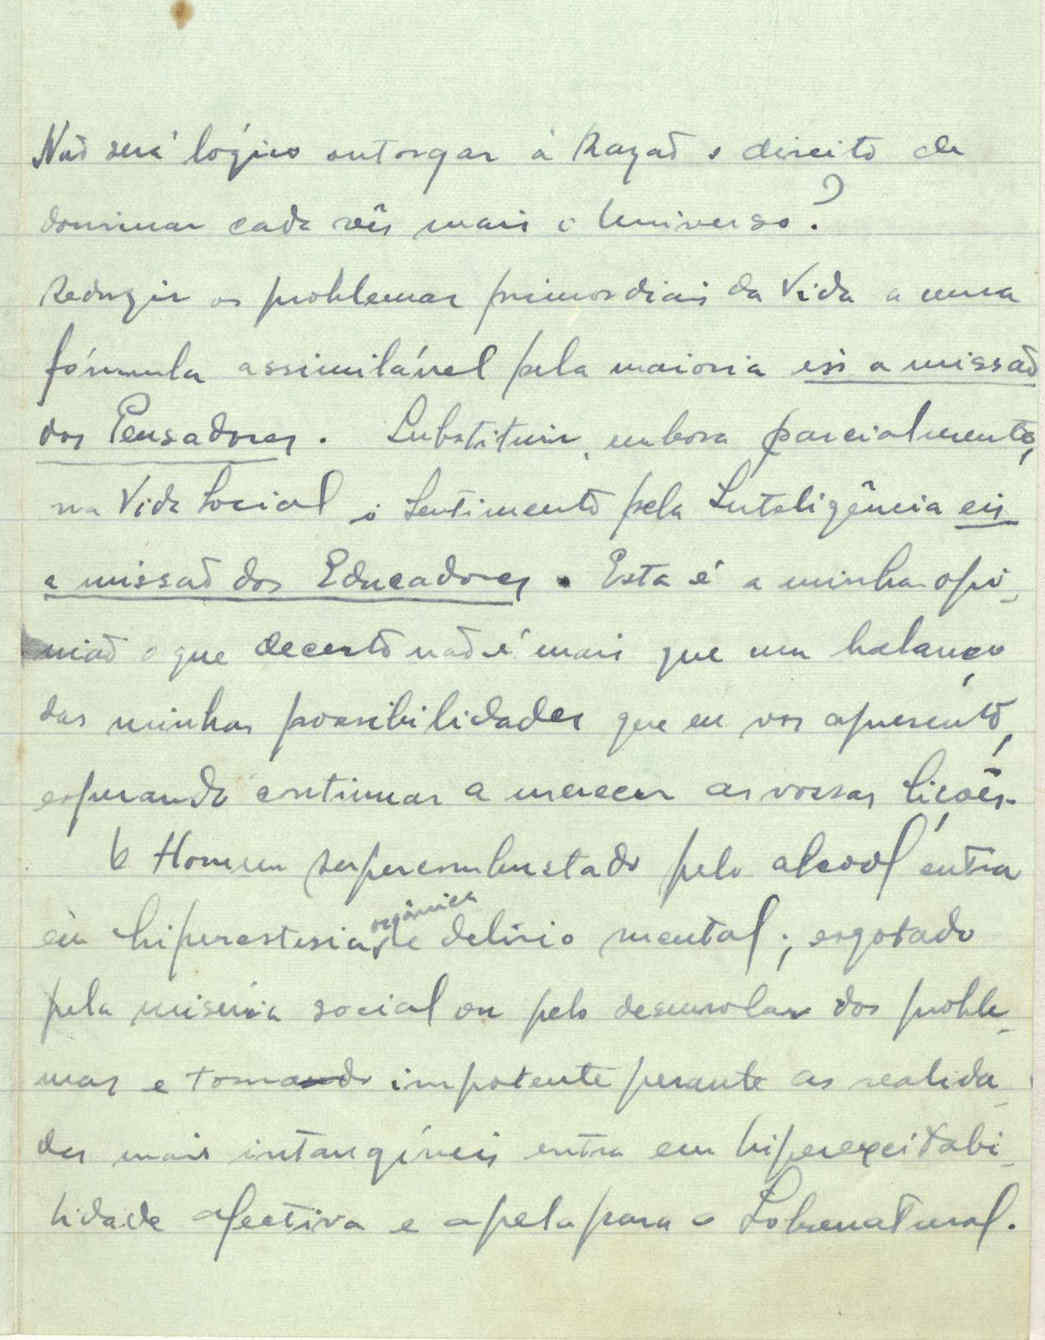 Não será lógico outorgar à Razão o direito de
dominar cada vês mais o Universo?
Reduzir os problemas primordiais da Vida a uma
fórmula assimilável pela maioria eis a missão
dos Pensadores. Substituir, embora parcialmente,
na Vida Social o Sentimento pela Inteligência eis
a missão dos Educadores. Esta é a minha opi-
nião o que decerto não é mais que um balanço
das minhas possibilidades que eu vos apresento,
esperando continuar a merecer as vossas lições.
O Homem supercombustado pelo alcool entra
em hiperestesia orgânica e delírio mental; esgotado
pela miséria social ou pelo desenrolar dos proble-
mas e tornado impotente perante as realida-
des mais intangíveis entra em hiperexcitabi-
lidade afectiva e apela para o Sobrenatural.